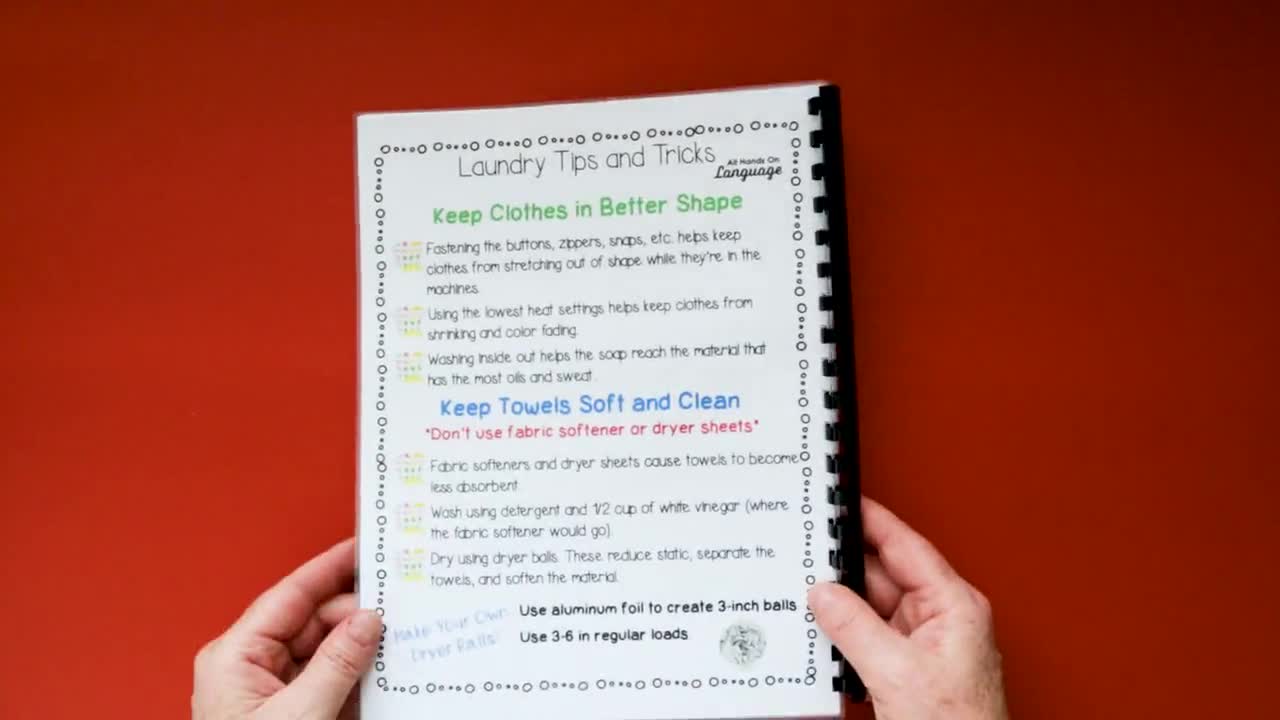 Laundry Tips and Tricks
All Hands On
Language
Keep Clothes in Better Shape
Fastening the buttons, zippers, snaps, etc. helps keep
clothes from stretching out of shape while they're in the
machines.
Using the lowest heat settings helps keep clothes from
shrinking and color fading.
Washing inside out helps the soap reach the material that
has the most oils and sweat.
Keep Towels Soft and Clean
*Don't use fabric softener or dryer sheets*
Fabric softeners and dryer sheets cause towels to become
less absorbent.
Wash using detergent and 1/2 cup of white vinegar (where
the fabric softener would go).
Dry using dryer balls. These reduce static, separate the
towels, and soften the material.
Make Your Own
Dryer Balls:
Use aluminum foil to create 3-inch balls
Use 3-6 in regular loads